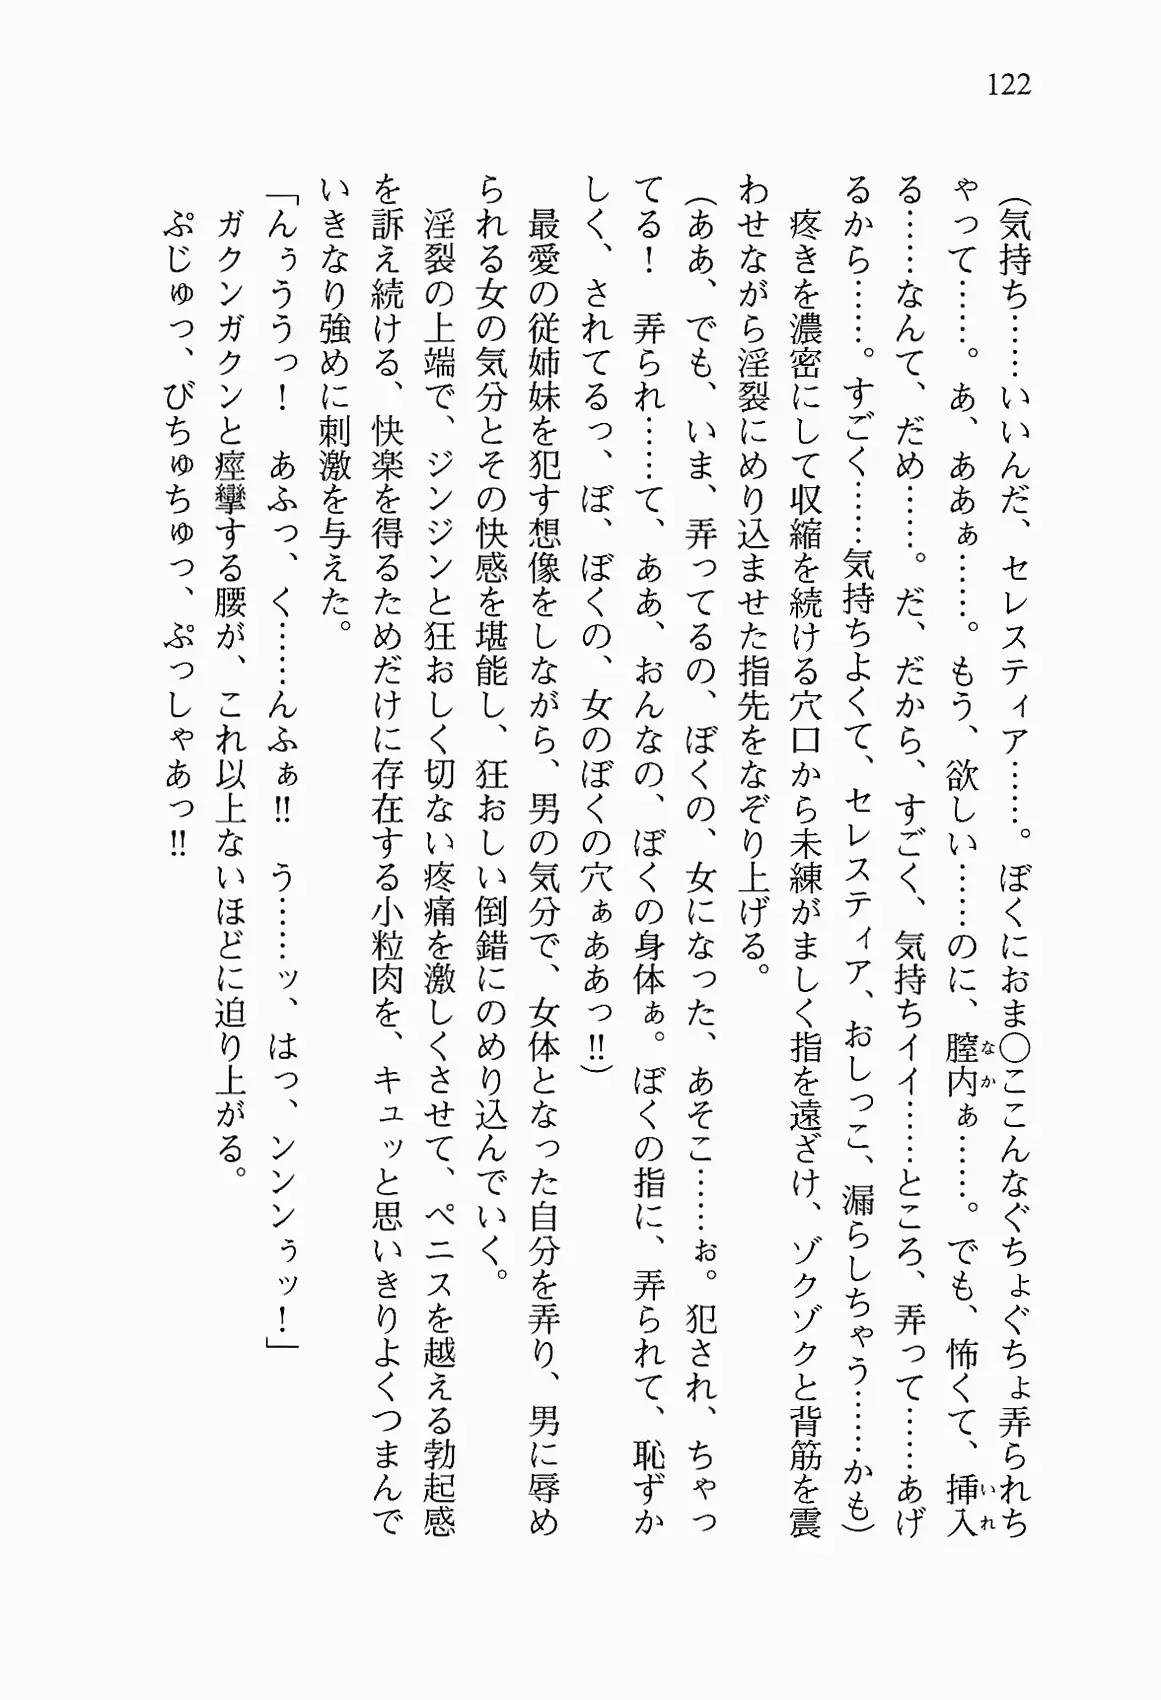 122
（気持ち……いいんだ、セレスティア……。ぼくにおま〇ここんなぐちょぐちょ弄られち
ゃって……。あ、ああぁ……。もう、欲しい……のに、膣内ぁ……。でも、怖くて、挿入
る……なんて、だめ……。だ、だから、すごく、気持ちイイ……ところ、弄って……あげ
るから……。すごく……気持ちよくて、セレスティア、おしっこ、漏らしちゃう……かも）
　疼きを濃密にして収縮を続ける穴口から未練がましく指を遠ざけ、ゾクゾクと背筋を震
わせながら淫裂にめり込ませた指先をなぞり上げる。
（ああ、でも、いま、弄ってるの、ぼくの、女になった、あそこ……ぉ。犯され、ちゃっ
てる！　弄られ……て、ああ、おんなの、ぼくの身体ぁ。ぼくの指に、弄られて、恥ずか
しく、されてるっ、ぼ、ぼくの、女のぼくの穴ぁああっ!!）
　最愛の従姉妹を犯す想像をしながら、男の気分で、女体となった自分を弄り、男に辱め
られる女の気分とその快感を堪能し、狂おしい倒錯にのめり込んでいく。
　淫裂の上端で、ジンジンと狂おしく切ない疼痛を激しくさせて、ペニスを越える勃起感
を訴え続ける、快楽を得るためだけに存在する小粒肉を、キュッと思いきりよくつまんで
いきなり強めに刺激を与えた。
「んぅううっ！　あふっ、く……んふぁ!!　う……ッ、はっ、ンンンぅッ！」
　ガクンガクンと痙攣する腰が、これ以上ないほどに迫り上がる。
　ぷじゅっ、びちゅちゅっ、ぷっしゃあっ!!
なか
いれ